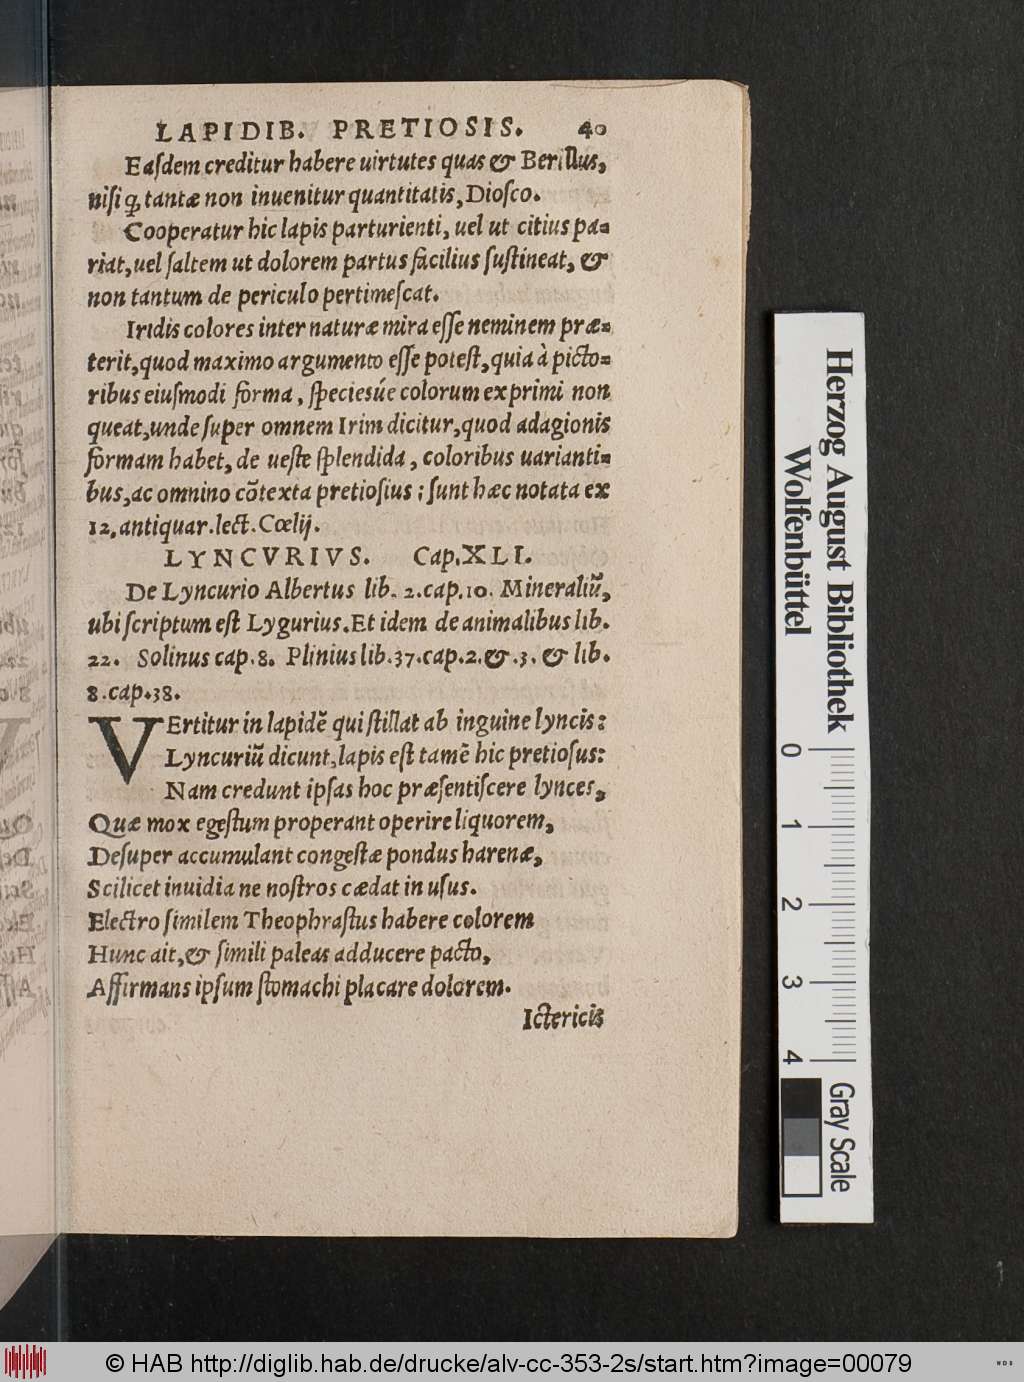 LAPIDIB. PRETIOSIS. 40
Eaſdem creditur habere uirtutes quas & Berillus,
niſi ꝙ tantæ non inuenitur quantitatis, Dioſco.
Cooperatur hic lapis parturienti, uel ut citius pa-
riat, uel ſaltem ut dolorem partus facilius ſuſtineat, &
non tantum de periculo pertimeſcat.
Iridis colores inter naturæ mira eſſe neminem præ-
terit, quod maximo argumento eſſe poteſt, quia à picto-
ribus eiuſmodi forma, ſpeciesúe colorum exprimi non
queat, unde ſuper omnem Irim dicitur, quod adagionis
formam habet, de ueſte ſplendida, coloribus uarianti-
bus, ac omnino cõtexta pretioſius; ſunt hæc notata ex
12, antiquar. lect. Cœlij.
LYNCVRIVS. Cap. XLI.
De Lyncurio Albertus lib. 2. cap. 10. Mineraliũ,
ubi ſcriptum eſt Lygurius. Et idem de animalibus lib.
22. Solinus cap. 8. Plinius lib. 37. cap. 2. & .3. & lib.
8. cap. 38.
VErtitur in lapidẽ qui ſtillat ab inguine lyncis:
Lyncuriũ dicunt, lapis eſt tamẽ hic pretioſus:
Nam credunt ipſas hoc præſentiſcere lynces,
Quæ mox egeſtum properant operire liquorem,
Deſuper accumulant congeſtæ pondus harenæ,
Scilicet inuidia ne noſtros cædat in uſus.
Electro ſimilem Theophraſtus habere colorem
Hunc ait, & ſimili paleas adducere pacto,
Affirmans ipſum ſtomachi placare dolorem.
Ictericis
Herzog August Bibliothek
Wolfenbüttel
0 1 2 3 4
Gray Scale
© HAB http://diglib.hab.de/drucke/alv-cc-353-2s/start.htm?image=00079